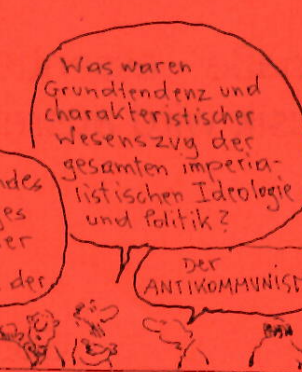 Was waren
Grundtendenz und
charakteristischer
Wesenszug der
gesamten imperia-
listischen Ideologie
und Politik?
der
Der
ANTIKOMMUNIS